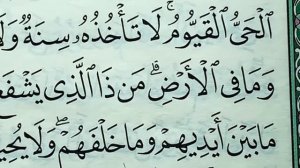 ٱلْحَىُّ ٱلْقَيُّومُ ۚ لَا تَأْخُذُهُۥ سِنَةٌ وَلَا
وَمَا فِى ٱلْأَرْضِ ۗ مَن ذَا ٱلَّذِى يَشْفَعُ
مَا بَيْنَ أَيْدِيهِمْ وَمَا خَلْفَهُمْ ۖ وَلَا يُحِي